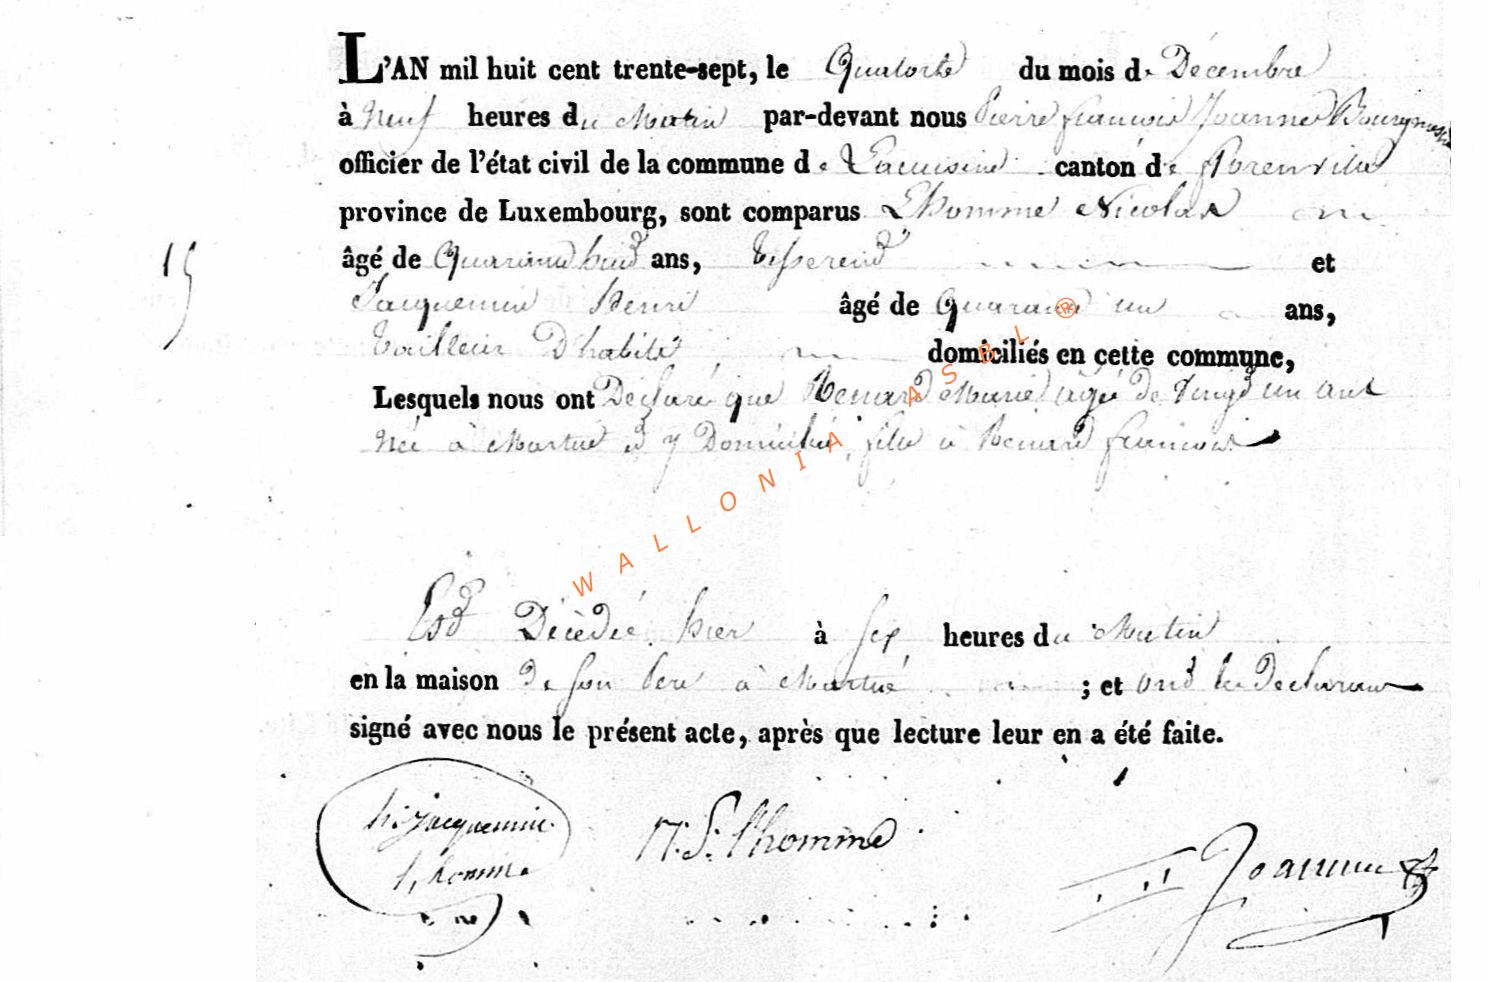 L'AN mil huit cent trente-sept, le Quatorze du mois de Décembre
à neuf heures du Matin par-devant nous Pierre françois Joannes Bourgmestre
officier de l'état civil de la commune de Lacuisine canton de florenville
province de Luxembourg, sont comparus Lhomme Nicolas
âgé de Quarante huit ans, tisserend et
Jacquemin Henri âgé de Quarante un ans,
tailleur D'habits domiciliés en cette commune,
15
Lesquels nous ont Déclaré que Renard Marie âgée de Vingt un ans
née à Martué et y Domiciliée, fille à Renard françois
Est Décédée hier à sept heures du Matin
en la maison de son père à Martué ; et ont les Déclarans
signé avec nous le présent acte, après que lecture leur en a été faite.
h: jacquemin N. S. l'homme Joannes
l'homme
WALLONIA ASBL ®